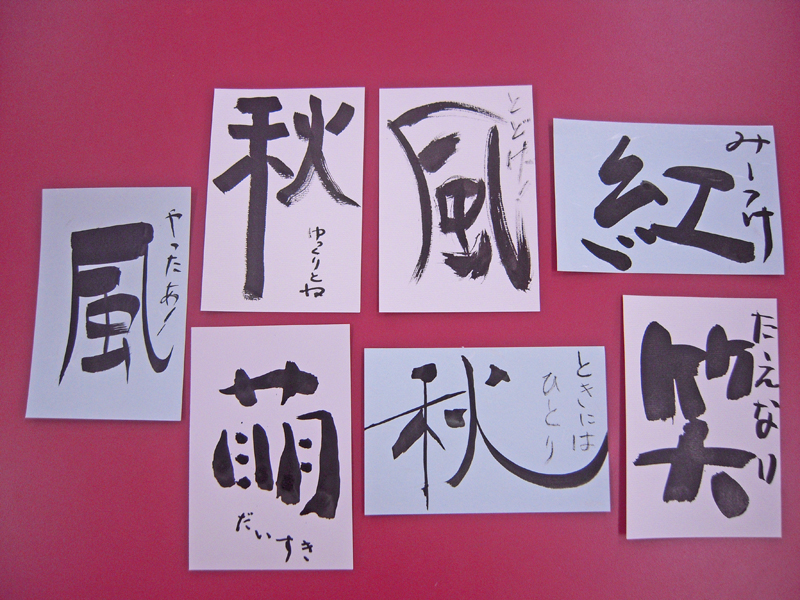 風
やったあ!
秋
ゆっくりとね
風
とどけ!
紅
みーつけ
萌
だいすき
秋
ときには
ひとり
笑
たえなり